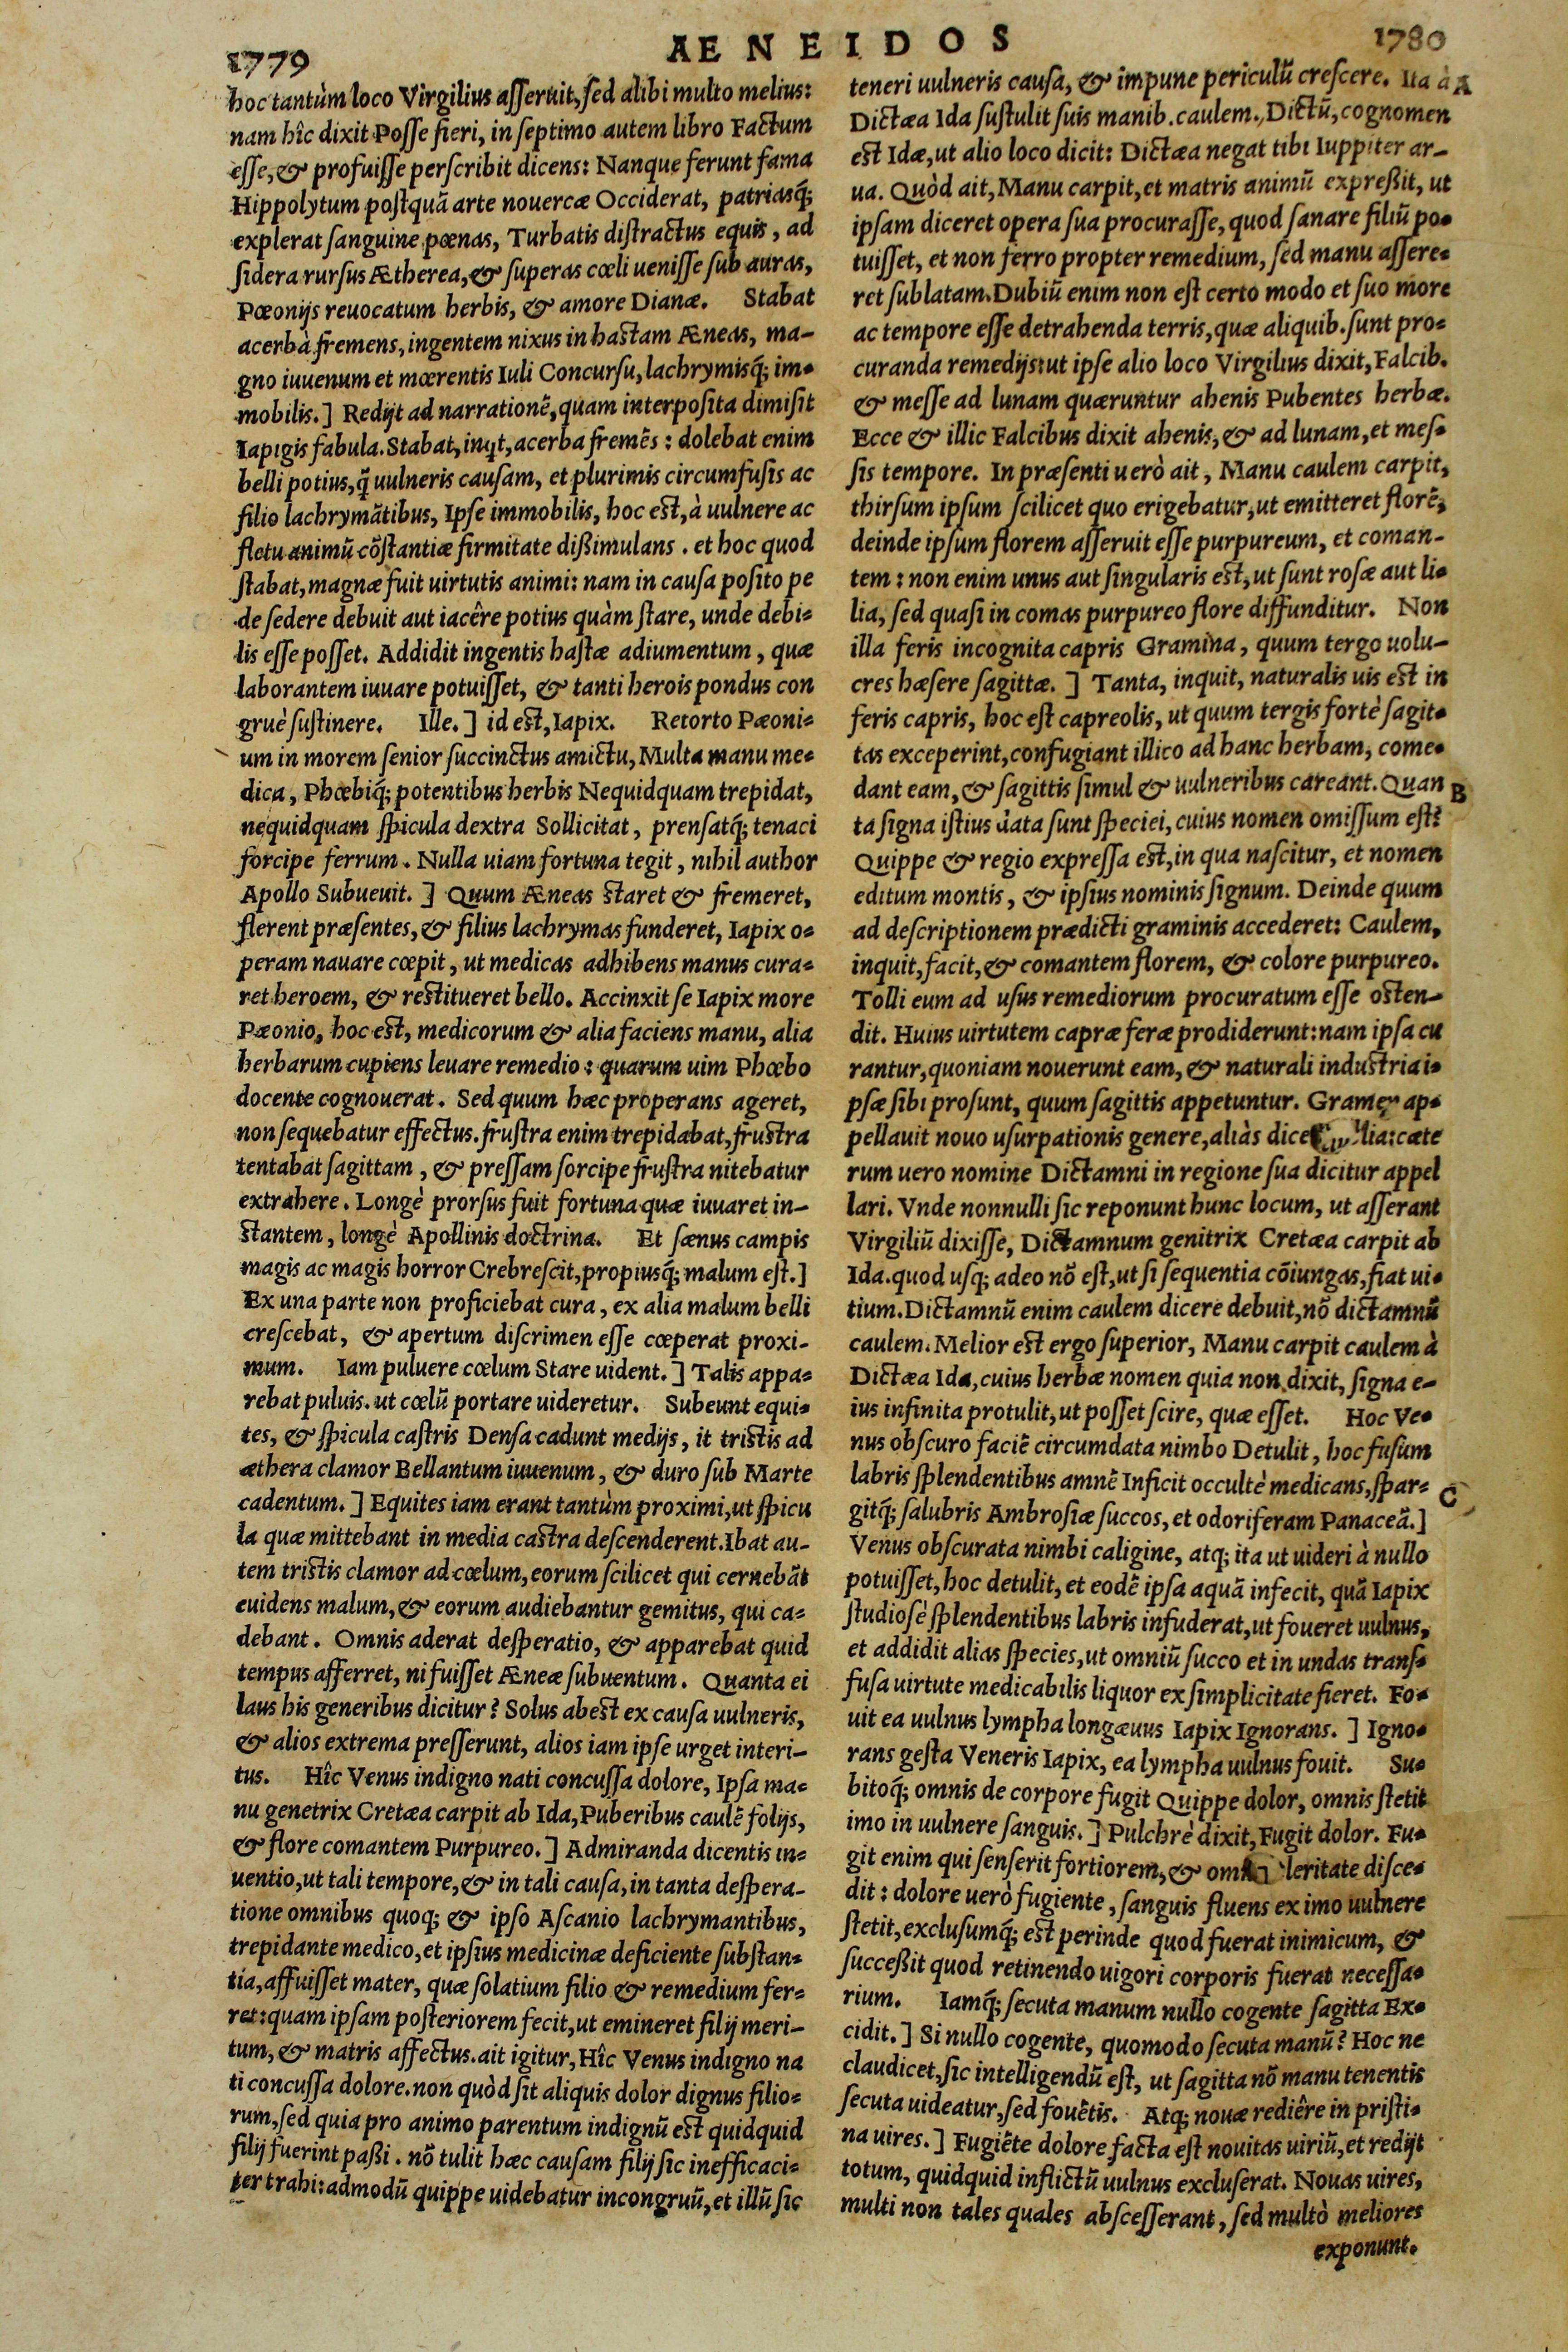 1779 AENEIDOS 1780
hoc tantùm loco Virgilius asseruit, sed alibi multo melius:
nam hîc dixit Posse fieri, in septimo autem libro Factum
esse, & profuisse perscribit dicens: Nanque ferunt fama
Hippolytum postquã arte nouercæ Occiderat, patriasq́;
explerat sanguine pœnas, Turbatis distractus equis, ad
sidera rursus Ætherea, & superas cœli uenisse sub auras,
Pæonijs reuocatum herbis, & amore Dianæ. Stabat
acerbà fremens, ingentem nixus in hastam Æneas, ma-
gno iuuenum et mœrentis Iuli Concursu, lachrymisq́; im-
mobilis.] Redijt ad narrationẽ, quam interposita dimisit
Iapigis fabula. Stabat, inqt, acerba fremẽs: dolebat enim
belli potius, q̃ uulneris causam, et plurimis circumfusis ac
filio lachrymãtibus, Ipse immobilis, hoc est, à uulnere ac
fletu animũ cõstantiæ firmitate dißimulans. et hoc quod
stabat, magnæ fuit uirtutis animi: nam in causa posito pe
de sedere debuit aut iacêre potius quàm stare, unde debi-
lis esse posset. Addidit ingentis hastæ adiumentum, quæ
laborantem iuuare potuisset, & tanti herois pondus con
gruè sustinere. Ille.] id est, Iapix. Retorto Pæoni-
um in morem senior succinctus amictu, Multa manu me-
dica, Phœbiq́; potentibus herbis Nequidquam trepidat,
nequidquam spicula dextra Sollicitat, prensatq́; tenaci
forcipe ferrum. Nulla uiam fortuna tegit, nihil author
Apollo Subueuit.] Quum Æneas staret & fremeret,
flerent præsentes, & filius lachrymas funderet, Iapix o-
peram nauare cœpit, ut medicas adhibens manus cura-
ret heroem, & restitueret bello. Accinxit se Iapix more
Pæonio, hoc est, medicorum & alia faciens manu, alia
herbarum cupiens leuare remedio: quarum uim Phœbo
docente cognouerat. Sed quum hæc properans ageret,
non sequebatur effectus. frustra enim trepidabat, frustra
tentabat sagittam, & pressam forcipe frustra nitebatur
extrahere. Longè prorsus fuit fortuna quæ iuuaret in-
stantem, longè Apollinis doctrina. Et sænus campis
magis ac magis horror Crebrescit, propiusq́; malum est.]
Ex una parte non proficiebat cura, ex alia malum belli
crescebat, & apertum discrimen esse cœperat proxi-
mum. Iam puluere cœlum Stare uident.] Talis appa-
rebat puluis. ut cœlũ portare uideretur. Subeunt equi-
tes, & spicula castris Densa cadunt medijs, it tristis ad
æthera clamor Bellantum iuuenum, & duro sub Marte
cadentum.] Equites iam erant tantùm proximi, ut spicu
la quæ mittebant in media castra descenderent. Ibat au-
tem tristis clamor ad cœlum, eorum scilicet qui cernebãt
euidens malum, & eorum audiebantur gemitus, qui ca-
debant. Omnis aderat desperatio, & apparebat quid
tempus afferret, ni fuisset Æneæ subuentum. Quanta ei
laus his generibus dicitur? Solus abest ex causa uulneris,
& alios extrema presserunt, alios iam ipse urget interi-
tus. Hîc Venus indigno nati concussa dolore, Ipsa ma-
nu genetrix Cretæa carpit ab Ida, Puberibus caulẽ folijs,
& flore comantem Purpureo.] Admiranda dicentis in-
uentio, ut tali tempore, & in tali causa, in tanta despera-
tione omnibus quoq; & ipso Ascanio lachrymantibus,
trepidante medico, et ipsius medicinæ deficiente substan-
tia, affuisset mater, quæ solatium filio & remedium fer-
ret: quam ipsam posteriorem fecit, ut emineret filij meri-
tum, & matris affectus. ait igitur, Hîc Venus indigno na
ti concussa dolore. non quòd sit aliquis dolor dignus filio-
rum, sed quia pro animo parentum indignũ est quidquid
filij fuerint paßi. nõ tulit hæc causam filij sic inefficaci-
ter trahi: admodũ quippe uidebatur incongruũ, et illũ sic
teneri uulneris causa, & impune periculũ crescere. Ita à A
Dictæa Ida sustulit suis manib. caulem. Dictũ, cognomen
est Idæ, ut alio loco dicit: Dictæa negat tibi Iuppiter ar-
ua. Quòd ait, Manu carpit, et matris animũ expreßit, ut
ipsam diceret opera sua procurasse, quod sanare filiũ po-
tuisset, et non ferro propter remedium, sed manu assere-
ret sublatam. Dubiũ enim non est certo modo et suo more
ac tempore esse detrahenda terris, quæ aliquib. sunt pro-
curanda remedijs: ut ipse alio loco Virgilius dixit, Falcib.
& messe ad lunam quæruntur ahenis Pubentes herbæ.
Ecce & illic Falcibus dixit ahenis, & ad lunam, et mes-
sis tempore. In præsenti uerò ait, Manu caulem carpit,
thirsum ipsum scilicet quo erigebatur, ut emitteret florẽ,
deinde ipsum florem asseruit esse purpureum, et coman-
tem: non enim unus aut singularis est, ut sunt rosæ aut li-
lia, sed quasi in comas purpureo flore diffunditur. Non
illa feris incognita capris Gramina, quum tergo uolu-
cres hæsere sagittæ.] Tanta, inquit, naturalis uis est in
feris capris, hoc est capreolis, ut quum tergis fortè sagit-
tas exceperint, confugiant illico ad hanc herbam, come-
dant eam, & sagittis simul & uulneribus careant. Quan B
ta signa istius data sunt speciei, cuius nomen omissum est?
Quippe & regio expressa est, in qua nascitur, et nomen
editum montis, & ipsius nominis signum. Deinde quum
ad descriptionem prædicti graminis accederet: Caulem,
inquit, facit, & comantem florem, & colore purpureo.
Tolli eum ad usus remediorum procuratum esse osten-
dit. Huius uirtutem capræ feræ prodiderunt: nam ipsa cu
rantur, quoniam nouerunt eam, & naturali industria i-
psæ sibi prosunt, quum sagittis appetuntur. Gramen ap-
pellauit nouo usurpationis genere, aliàs lia: cæte
rum uero nomine Dictamni in regione sua dicitur appel
lari. Vnde nonnulli sic reponunt hunc locum, ut asserant
Virgiliũ dixisse, Dictamnum genitrix Cretæa carpit ab
Ida. quod usq; adeo nõ est, ut si sequentia cõiungas, fiat ui-
tium. Dictamnũ enim caulem dicere debuit, nõ dictamnũ
caulem. Melior est ergo superior, Manu carpit caulem à
Dictæa Ida, cuius herbæ nomen quia non dixit, signa e-
ius infinita protulit, ut posset scire, quæ esset. Hoc Ve-
nus obscuro faciẽ circumdata nimbo Detulit, hoc fusum
labris splendentibus amnẽ Inficit occultè medicans, spar- C
gitq́; salubris Ambrosiæ succos, et odoriferam Panaceã.]
Venus obscurata nimbi caligine, atq; ita ut uideri à nullo
potuisset, hoc detulit, et eodẽ ipsa aquã infecit, quã Iapix
studiosè splendentibus labris infuderat, ut foueret uulnus,
et addidit alias species, ut omniũ succo et in undas trans-
fusa uirtute medicabilis liquor ex simplicitate fieret. Fo-
uit ea uulnus lympha longæuus Iapix Ignorans.] Igno-
rans gesta Veneris Iapix, ea lympha uulnus fouit. Su-
bitoq́; omnis de corpore fugit Quippe dolor, omnis stetit
imo in uulnere sanguis.] Pulchrè dixit, Fugit dolor. Fu-
git enim qui senserit fortiorem, & leritate disce-
dit: dolore uerò fugiente, sanguis fluens ex imo uulnere
stetit, exclusumq́; est perinde quod fuerat inimicum, &
succeßit quod retinendo uigori corporis fuerat necessa-
rium. Iamq́; secuta manum nullo cogente sagitta Ex-
cidit.] Si nullo cogente, quomodo secuta manũ? Hoc ne
claudicet, sic intelligendũ est, ut sagitta nõ manu tenentis
secuta uideatur, sed fouẽtis. Atq; nouæ rediêre in pristi-
na uires.] Fugiẽte dolore facta est nouitas uiriũ, et redijt
totum, quidquid inflictũ uulnus excluserat. Nouas uires,
multi non tales quales abscesserant, sed multò meliores
exponunt.